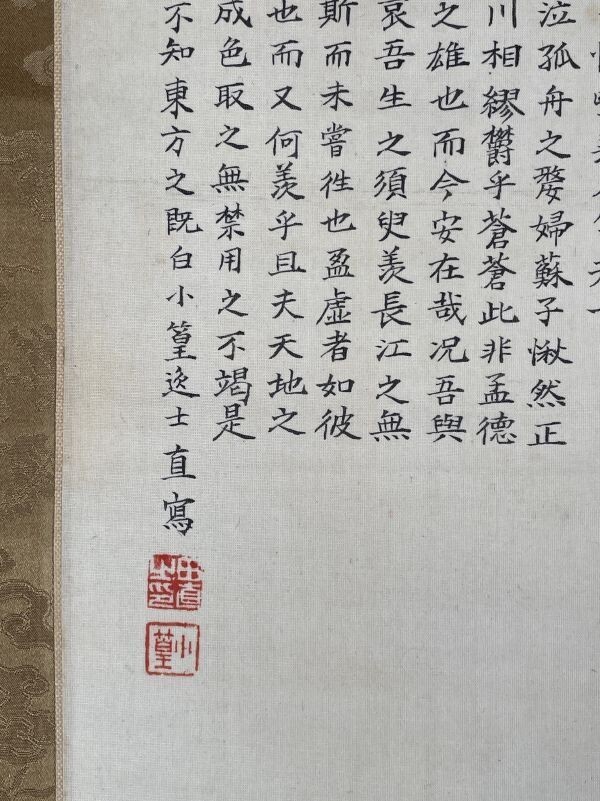 泣孤舟之嫠婦蘇子愀然正
川相繆欝乎蒼蒼此非孟德
之雄也而今安在哉况吾與
哀吾生之須臾羨長江之無
斯而未嘗徃也盈虛者如彼
也而又何羨乎且夫天地之
成色取之無禁用之不竭是
不知東方之既白小篁逸士直寫
直之印
小篁